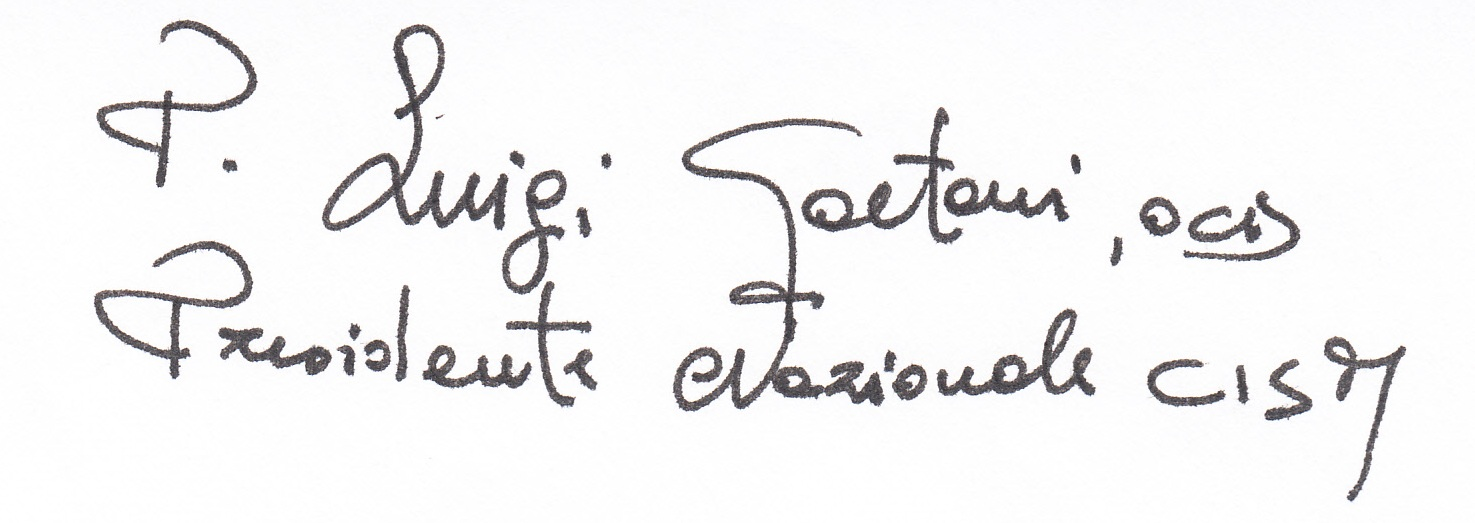 P. Luigi Gaetani, ocd
Presidente Nazionale CISM